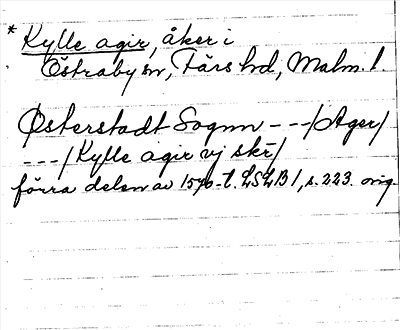 * Kylle agir, åker i
Östraby sn, Färs hd, Malm. l.
Østerstadt Sognn - - -/Ager/
- - -/Kylle agir vj skr/
förra delen av 1570-t. LSLB 1, s. 223. orig.